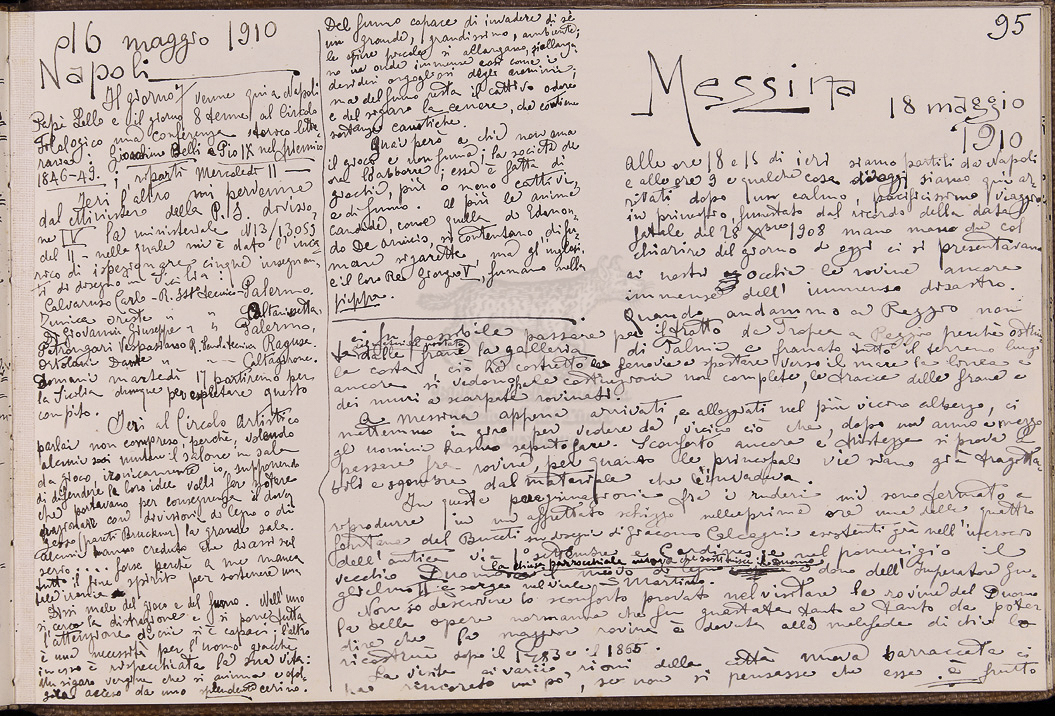 16 maggio 1910
Napoli
Il giorno 7 venne qui a Napoli
Papà Lello e il giorno 8 tenne, al Circolo
Filologico una conferenza storico lette
raria: Gioachino Belli e Pio IX nel
1846-49. ripartì Mercoledì 11 —
Ieri l'altro mi pervenne
dal Ministero della P. I. divisio
ne IV la ministeriale N. 13/13053
del 11 - nella quale mi è dato l'inca
rico di ispezionare cinque insegnan
ti di disegno in Sicilia:
Calvaruso Carlo - R. Tecnica - Palermo.
Zunica Oreste " " Caltanissetta.
Di Giovanni Giuseppe " " Palermo.
Petrongari Vespasiano R. Tecnica Ragusa.
Ortolani Dante " " Caltagirone.
Domani martedì 17 partiremo per
la Sicilia dunque per espletare questo
compito.
Ieri al Circolo Artistico
parlai non compreso; perchè, volendo
alcuni soci mutare il salone in sala
da gioco, ironicamente io, supponendo
di difendere la loro idea volli far notare
che portavano per conseguenza il dover
trasportare con divisioni di legno o di
gesso la grande sala.
Alcuni hanno creduto che dicessi sul
serio.... forse perchè a me manca
tutto il fine spirito per sostenere una
tale ironia.
Dissi male del gioco e del fumo. Nell'uno
si cerca la distrazione e si porta tutta
l'attenzione di cui si è capaci; l'altro
è una necessità per l'uomo giacchè
in esso è rispecchiata la sua vita:
Un sigaro vergine che si anima e
acceso da uno splendente cerino.
Del fumo capace di invadere di sè
un grande, grandissimo, ambiente;
le spire piccole si allargano,
no in onde immense così come i
desideri orgogliosi degli uomini;
ma del fumo resta il cattivo odore
e del sigaro la cenere, che contiene
sostanze caustiche.
Guai però a chi non ama
il gioco e non fuma; la società de
ora l'aborre; essa è fatta di
giochi, più o meno cattivi,
e di fumo. Al più le anime
candide, come quella di Edmon
do De Amicis, si contentano di fu
mare sigarette ma gl'inglesi,
e il loro Re Giorgio V, fumano nella
pippa.
95
Messina
18 maggio
1910
Alle ore 18 e 15 di ieri siamo partiti da Napoli
e alle ore 9 e qualche cosa di oggi siamo qui ar
rivati dopo un calmo, pacificissimo viaggio
in principio, funestato dal ricordo della data
fatale del 28 Xbre 1908 mano mano che col
chiarire del giorno di oggi ci si presentavano
ai nostri occhi le rovine ancora
immense dell'immenso disastro.
Quando andammo a Reggio non
fu possibile passare per il tratto da Tropea a Reggio perchè
dalle frane la galleria di Palmi e franato tutto il terreno lungo
la costa; ciò ha costretto le ferrovie a spostare verso il mare la linea e
ancora si vedono, nelle costruzioni non complete, le tracce delle frane e
dei muri a scarpata rovinati.
A Messina appena arrivati, e alloggiati nel più vicino albergo, ci
mettemmo in giro per vedere da vicino ciò che, dopo un anno e mezzo
gli uomini hanno saputo fare. Sconforto ancora e tristezza si prova a
passare fra rovine, per quanto le principali vie siano già tragitta
bili e sgombre dal materiale che le invadeva.
In questa peregrinazione fra i ruderi mi sono fermato a
riprodurre in un affrettato schizzo nelle prime ore una delle quattro
fontane del Buceti su disegni di Giacomo Calcagni esistenti già nell'incrocio
dell'antica via 1° settembre e Cardines e nel pomeriggio il
vecchio Duomo la chiesa parrocchiale nuova che sostituisce il Duomo dono dell'Imperatore Gu
glielmo II e sorge sul viale S. Martino.
Non so descrivere lo sconforto provato nel visitare le rovine del Duomo
la bella opera normanna che fu guastata tanto e tanto da poter
dire che la maggior rovina è dovuta alla malafede di chi lo
ricostruì dopo il 1783 e il 1865.
La visita ai varii rioni della città nuova baraccata ci
ha rincorato un pò, se non si pensasse che esse è frutto